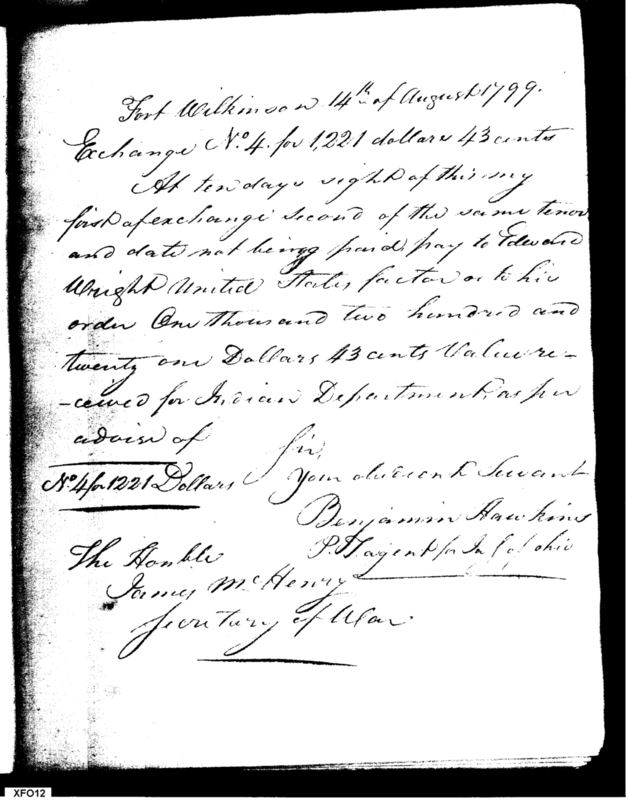 Fort Wilkinson 14th of August 1799.
Exchange No. 4. for 1,221 dollars 43 cents
At ten days sight of this my
first of exchange second of the same tenor
and date not being paid, pay to Edward
Wright United States factor or to his
order One thousand two hundred and
twenty one Dollars 43 cents Value re-
-ceived for Indian Department, as per
advise of
Sir,
No. 4 for 1221 Dollars
Your obedient Servant
Benjamin Hawkins
P. T. agent for In S of ohio
The Honble
James McHenry
Secretary of War
XFO12